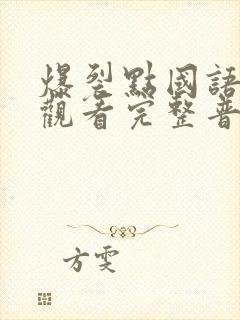 爆裂點國語
觀看完整普
方雯